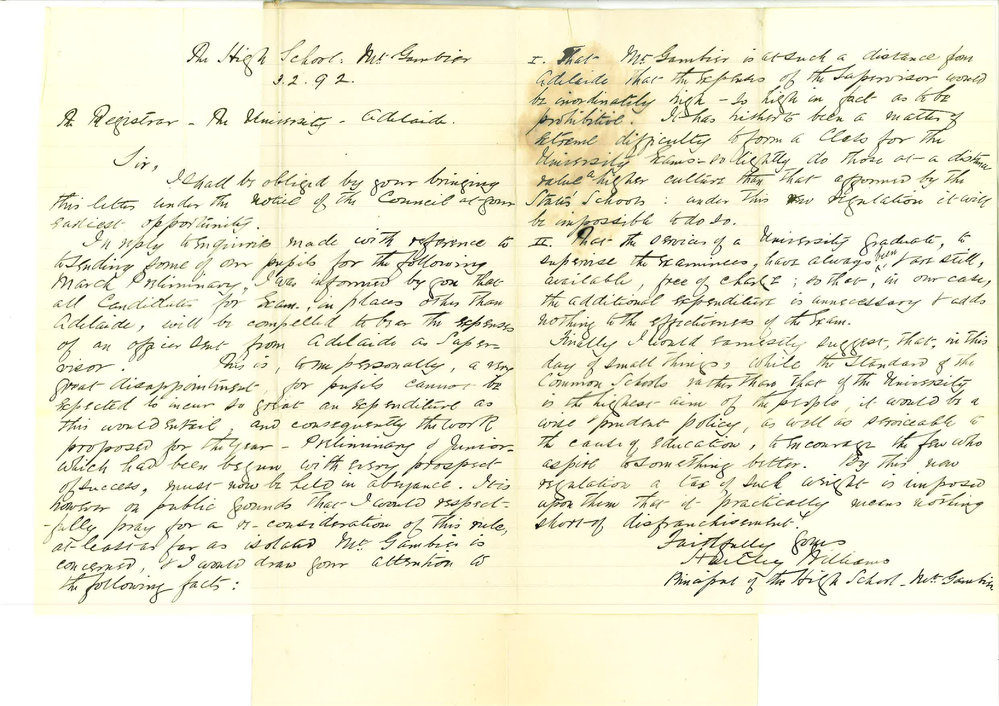 The High School. Mt. Gambier
3.2.92.
The Registrar – The University – Adelaide.
Sir,
I shall be obliged by your bringing
this letter under the notice of the Council at your
earliest opportunity.
In reply to enquiries made with reference to
sending some of our pupils for the following
March Preliminary, I was informed by you that
all Candidates for Exam., in places other than
Adelaide, will be compelled to bear the expenses
of an officer sent from Adelaide as Super-
visor. This is, to me personally, a very
great disappointment, for pupils cannot be
expected to incur so great an expenditure as
this would entail, and consequently the work
proposed for the year – Preliminary & Junior –
which had been begun with every prospect
of success, must now be held in abeyance. It is
however on public grounds that I would respect-
-fully pray for a re-consideration of this rule,
at least as far as isolated Mt. Gambier is
concerned, & I would draw your attention to
the following facts:
I. That Mt. Gambier is at such a distance from
Adelaide that the expenses of the Supervisor would
be inordinately high – so high in fact as to be
prohibitive. It has hitherto been a matter of
extreme difficulty to form a Class for the
University Exams. – so lightly do those at a distance
value a higher culture than that afforded by the
State Schools: under this new regulation it will
be impossible to do so.
II. That the services of a University graduate, to
supervise the examinees, have always been & are still,
available, free of charge; so that, in our case,
the additional expenditure is unnecessary & adds
nothing to the effectiveness of the Exam.
Finally I would earnestly suggest, that, in this
day of small things, while the Standard of the
Common Schools rather than that of the University
is the highest aim of the people, it would be a
wise & prudent policy, as well as serviceable to
the cause of education, to encourage the few who
aspire to something better. By this new
regulation a tax of such weight is imposed
upon them that it practically means nothing
short of disfranchisement.
Faithfully yours
Hartley Williams
Principal of the High School – Mt. Gambier